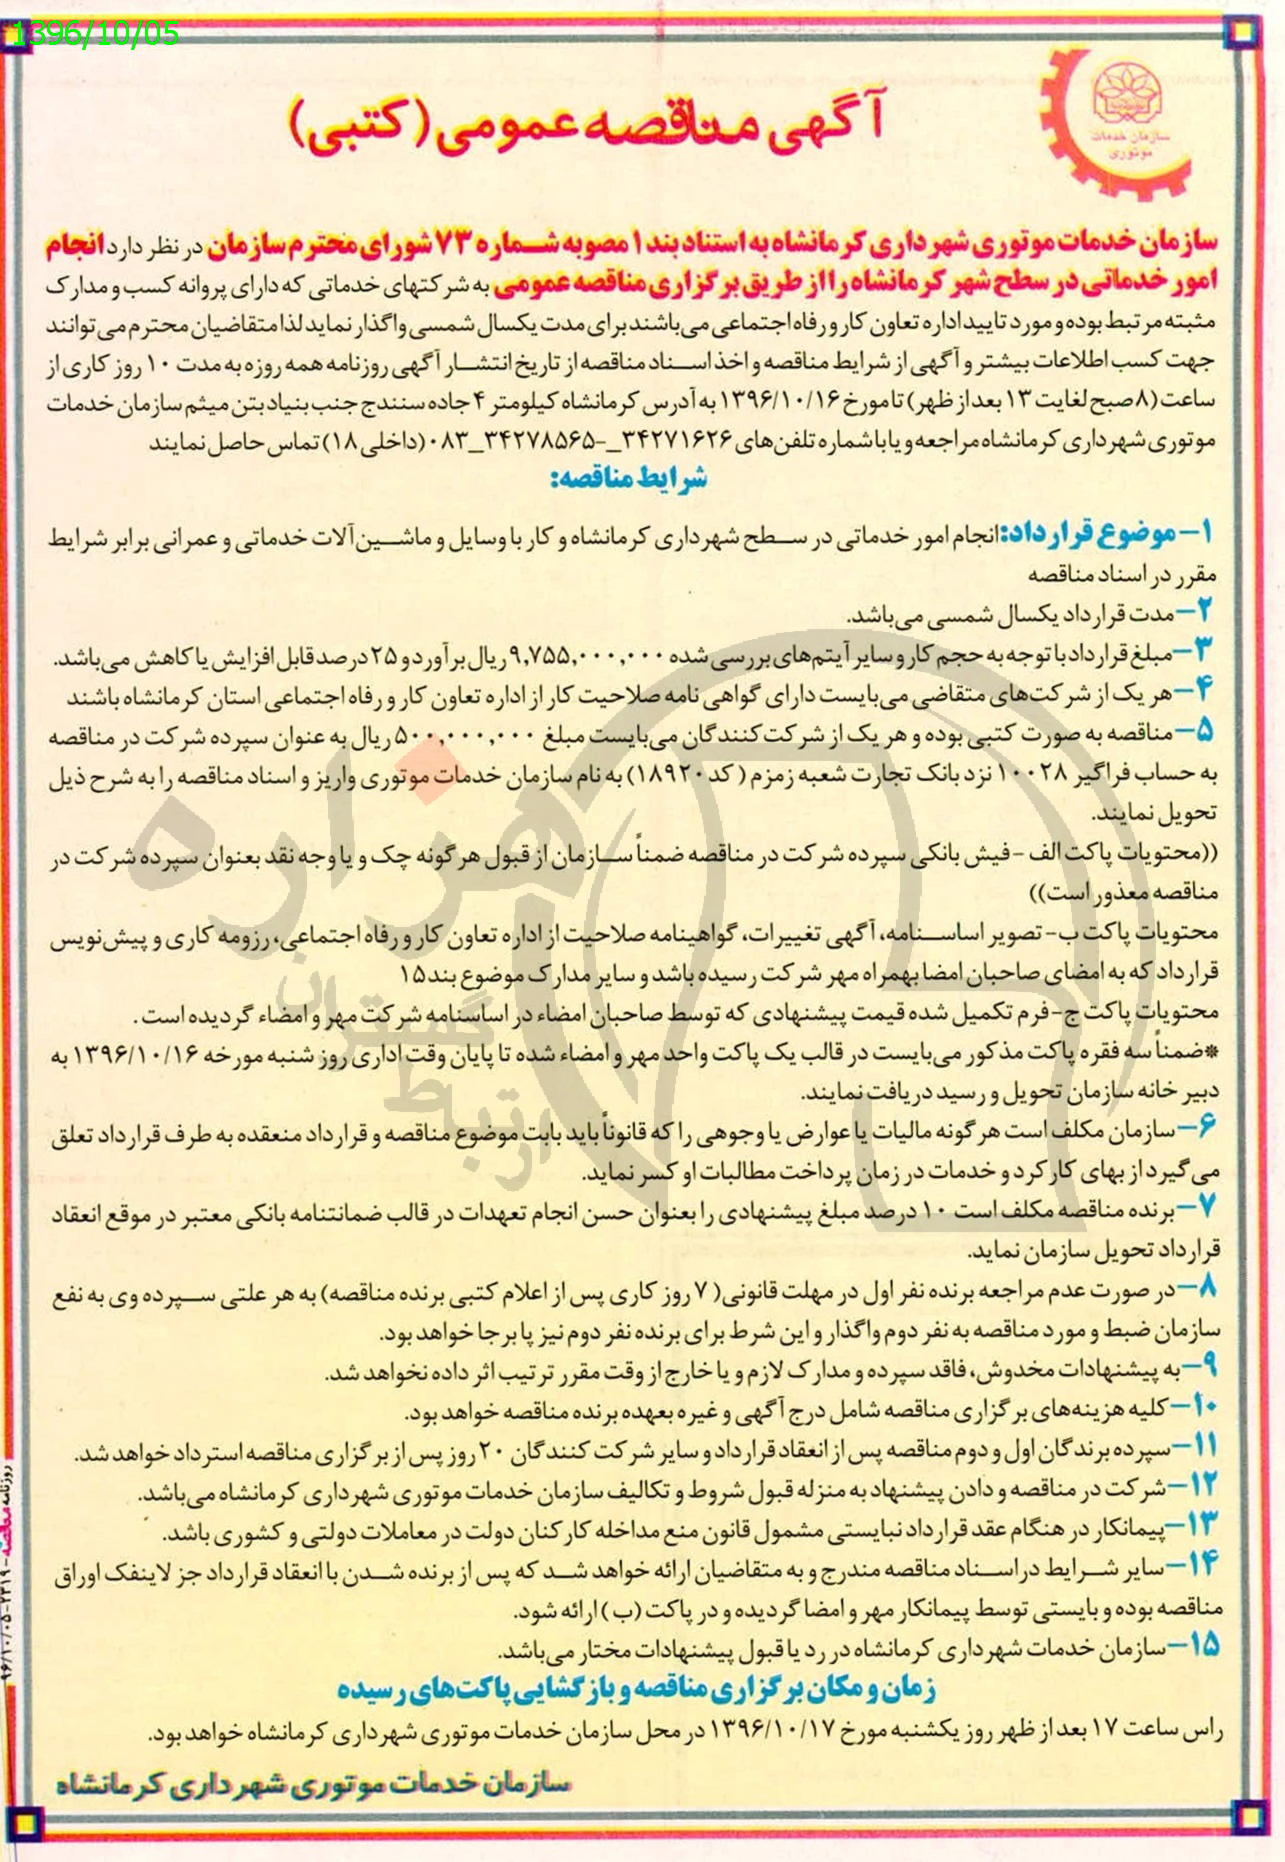 1396/10/05
سازمان خدمات
موتوری
آگهی مناقصه عمومی (کتبی)
سازمان خدمات موتوری شهرداری کرمانشاه به استناد بند ۱ مصوبه شماره ۷۳ شورای محترم سازمان در نظر دارد انجام
امور خدماتی در سطح شهر کرمانشاه را از طریق برگزاری مناقصه عمومی به شرکتهای خدماتی که دارای پروانه کسب و مدارک
مثبته مرتبط بوده و مورد تایید اداره تعاون کار و رفاه اجتماعی می‌باشند برای مدت یکسال شمسی واگذار نماید لذا متقاضیان محترم می‌توانند
جهت کسب اطلاعات بیشتر و آگهی از شرایط مناقصه و اخذ اسناد مناقصه از تاریخ انتشار آگهی روزنامه همه روزه به مدت ۱۰ روز کاری از
ساعت (۸ صبح لغایت ۱۳ بعد از ظهر) تا مورخ ۱۳۹۶/۱۰/۱۶ به آدرس کرمانشاه کیلومتر ۴ جاده سنندج جنب بنیاد بتن میثم سازمان خدمات
موتوری شهرداری کرمانشاه مراجعه و یا با شماره تلفن‌های ۳۴۲۷۱۶۲۶_-۳۴۲۷۸۵۶۵_۰۸۳ (داخلی ۱۸) تماس حاصل نمایند
شرایط مناقصه:
۱- موضوع قرارداد: انجام امور خدماتی در سطح شهرداری کرمانشاه و کار با وسایل و ماشین‌آلات خدماتی و عمرانی برابر شرایط
مقرر در اسناد مناقصه
۲- مدت قرارداد یکسال شمسی می‌باشد.
۳- مبلغ قرارداد با توجه به حجم کار و سایر آیتم‌های بررسی شده ۹,۷۵۵,۰۰۰,۰۰۰ ریال برآورد و ۲۵ درصد قابل افزایش یا کاهش می‌باشد.
۴- هر یک از شرکت‌های متقاضی می‌بایست دارای گواهی نامه صلاحیت کار از اداره تعاون کار و رفاه اجتماعی استان کرمانشاه باشند
۵- مناقصه به صورت کتبی بوده و هر یک از شرکت‌کنندگان می‌بایست مبلغ ۵۰۰,۰۰۰,۰۰۰ ریال به عنوان سپرده شرکت در مناقصه
به حساب فراگیر ۱۰۰۲۸ نزد بانک تجارت شعبه زمزم (کد ۱۸۹۲۰) به نام سازمان خدمات موتوری واریز و اسناد مناقصه را به شرح ذیل
تحویل نمایند.
((محتویات پاکت الف - فیش بانکی سپرده شرکت در مناقصه ضمناً سازمان از قبول هر گونه چک و یا وجه نقد بعنوان سپرده شرکت در
مناقصه معذور است))
محتویات پاکت ب- تصویر اساسنامه، آگهی تغییرات، گواهینامه صلاحیت از اداره تعاون کار و رفاه اجتماعی، رزومه کاری و پیش‌نویس
قرارداد که به امضای صاحبان امضا بهمراه مهر شرکت رسیده باشد و سایر مدارک موضوع بند ۱۵
محتویات پاکت ج- فرم تکمیل شده قیمت پیشنهادی که توسط صاحبان امضاء در اساسنامه شرکت مهر و امضاء گردیده است.
*ضمناً سه فقره پاکت مذکور می‌بایست در قالب یک پاکت واحد مهر و امضاء شده تا پایان وقت اداری روز شنبه مورخه ۱۳۹۶/۱۰/۱۶ به
دبیر خانه سازمان تحویل و رسید دریافت نمایند.
۶- سازمان مکلف است هر گونه مالیات یا عوارض یا وجوهی را که قانوناً باید بابت موضوع مناقصه و قرارداد منعقده به طرف قرارداد تعلق
می گیرد از بهای کارکرد و خدمات در زمان پرداخت مطالبات او کسر نماید.
۷- برنده مناقصه مکلف است ۱۰ درصد مبلغ پیشنهادی را بعنوان حسن انجام تعهدات در قالب ضمانتنامه بانکی معتبر در موقع انعقاد
قرارداد تحویل سازمان نماید.
۸- در صورت عدم مراجعه برنده نفر اول در مهلت قانونی (۷ روز کاری پس از اعلام کتبی برنده مناقصه) به هر علتی سپرده وی به نفع
سازمان ضبط و مورد مناقصه به نفر دوم واگذار و این شرط برای برنده نفر دوم نیز پا برجا خواهد بود.
۹- به پیشنهادات مخدوش، فاقد سپرده و مدارک لازم و یا خارج از وقت مقرر ترتیب اثر داده نخواهد شد.
۱۰- کلیه هزینه‌های برگزاری مناقصه شامل درج آگهی و غیره بعهده برنده مناقصه خواهد بود.
۱۱- سپرده برندگان اول و دوم مناقصه پس از انعقاد قرارداد و سایر شرکت کنندگان ۲۰ روز پس از برگزاری مناقصه استرداد خواهد شد.
۱۲- شرکت در مناقصه و دادن پیشنهاد به منزله قبول شروط و تکالیف سازمان خدمات موتوری شهرداری کرمانشاه می‌باشد.
۱۳- پیمانکار در هنگام عقد قرارداد نبایستی مشمول قانون منع مداخله کارکنان دولت در معاملات دولتی و کشوری باشد.
۱۴- سایر شرایط در اسناد مناقصه مندرج و به متقاضیان ارائه خواهد شد که پس از برنده شدن با انعقاد قرارداد جز لاینفک اوراق
مناقصه بوده و بایستی توسط پیمانکار مهر و امضا گردیده و در پاکت (ب) ارائه شود.
۱۵- سازمان خدمات شهرداری کرمانشاه در رد یا قبول پیشنهادات مختار می‌باشد.
زمان و مکان برگزاری مناقصه و بازگشایی پاکت‌های رسیده
راس ساعت ۱۷ بعد از ظهر روز یکشنبه مورخ ۱۳۹۶/۱۰/۱۷ در محل سازمان خدمات موتوری شهرداری کرمانشاه خواهد بود.
سازمان خدمات موتوری شهرداری کرمانشاه
روزنامه مناقصه - ۲۳۱۹-۹۶/۱۰/۰۵
هزاره
گستران
ارتباط